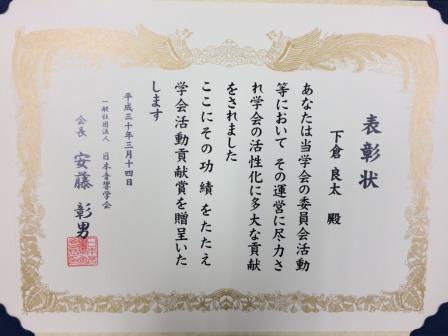 表彰状
下倉 良太 殿
あなたは当学会の委員会活動
等において その運営に尽力さ
れ学会の活性化に多大な貢献
をされました
ここにその功績をたたえ
学会活動貢献賞を贈呈いた
します
平成三十年三月十四日
一般社団法人 日本音響学会
会長 安藤 彰男